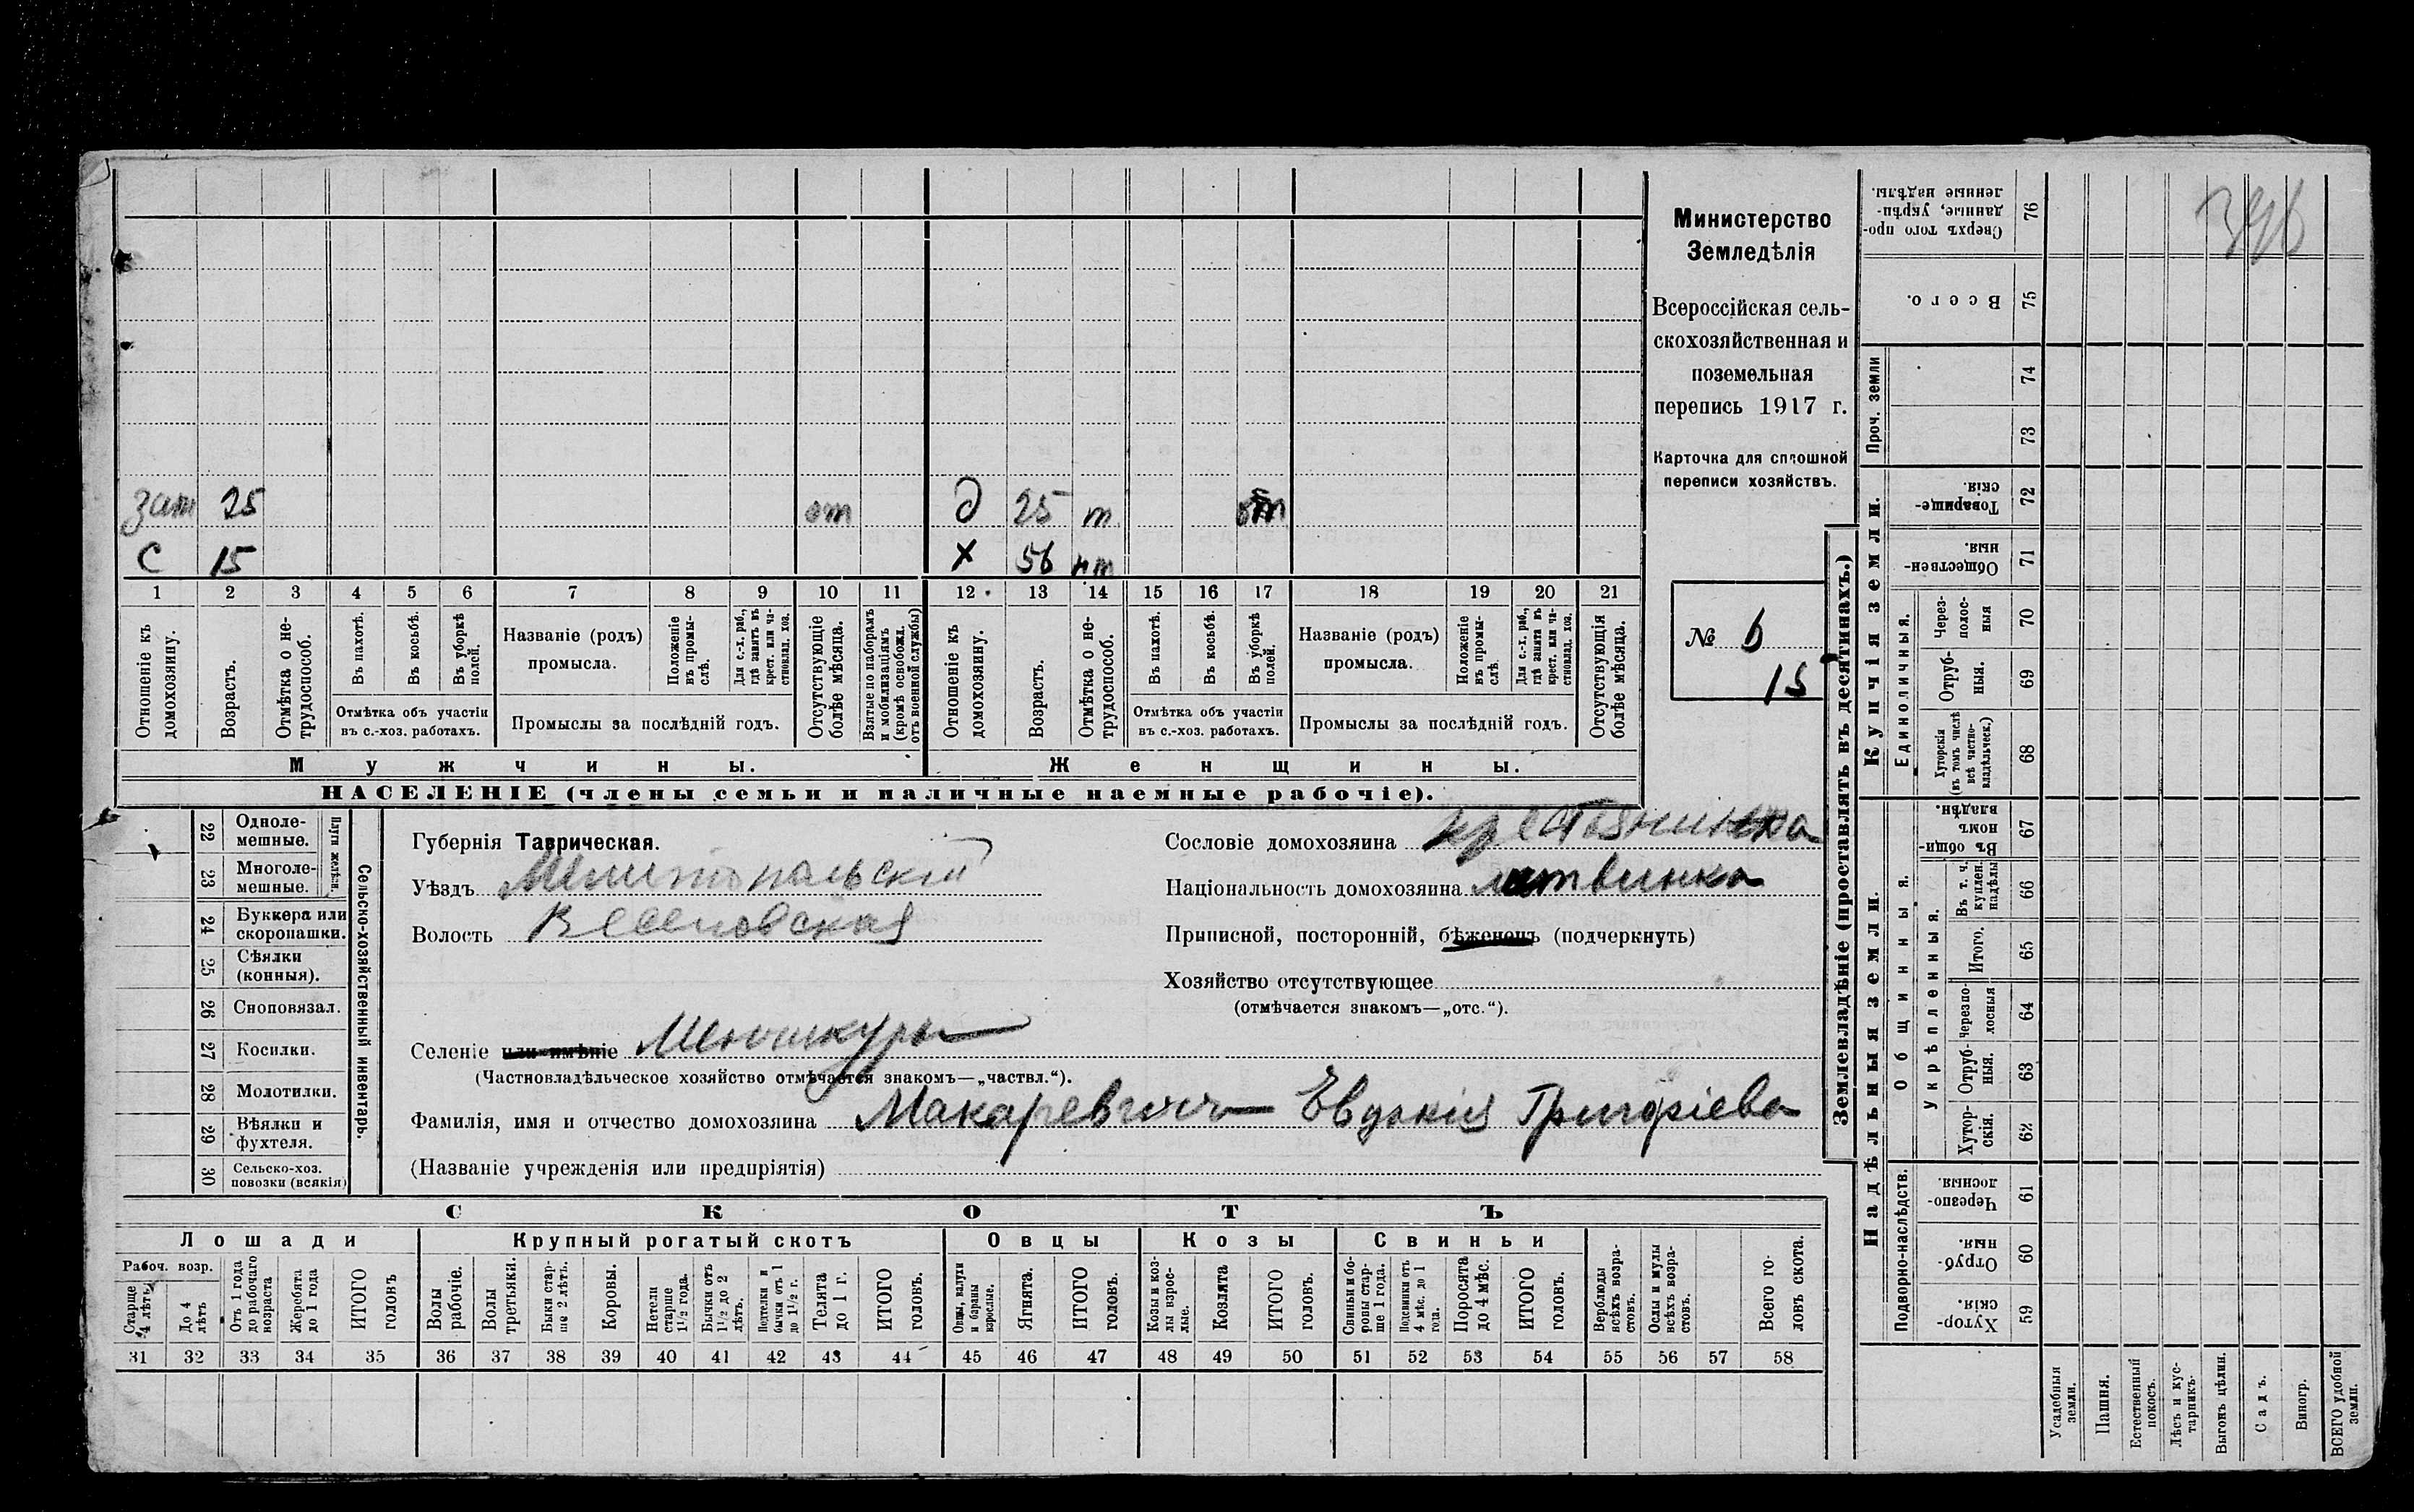 зат 25 от д 25 т от
С 15 х 56 нт
1 2 3 4 5 6 7 8 9 10 11 12 13 14 15 16 17 18 19 20 21
Отношеніе къ домохозяину.
Возрастъ.
Отмѣтка о нетрудоспособ.
Въ пахотѣ.
Въ косьбѣ.
Въ уборкѣ полей.
Отмѣтка объ участіи
въ с.-хоз. работахъ.
Названіе (родъ)
промысла.
Положеніе въ промыслѣ.
Для с.-х. раб., гдѣ занятъ въ крест. или частновлад. хоз.
Промыслы за послѣдній годъ.
Отсутствующіе болѣе мѣсяца.
Взятые по наборамъ и мобилизаціямъ (кромѣ освобожд. отъ военной службы)
Отношеніе къ домохозяину.
Возрастъ.
Отмѣтка о нетрудоспособ.
Въ пахотѣ.
Въ косьбѣ.
Въ уборкѣ полей.
Отмѣтка объ участіи
въ с.-хоз. работахъ.
Названіе (родъ)
промысла.
Положеніе въ промыслѣ.
Для с.-х. раб., гдѣ занята въ крест. или частновлад. хоз.
Промыслы за послѣдній годъ.
Отсутствующія болѣе мѣсяца.
Мужчины. Женщины.
НАСЕЛЕНІЕ (члены семьи и наличные наемные рабочіе).
Министерство
Земледѣлія
Всероссійская сель-
скохозяйственная и
поземельная
перепись 1917 г.
Карточка для сплошной
переписи хозяйствъ.
№ 6
15
22 Однолемешные.
23 Многолемешные.
Плуги желѣзн.
24 Буккера или скоропашки.
25 Сѣялки (конныя).
26 Сноповязал.
27 Косилки.
28 Молотилки.
29 Вѣялки и фухтеля.
30 Сельско-хоз. повозки (всякія)
Сельско-хозяйственный инвентарь.
Губернія Таврическая.
Уѣздъ Мелитопальскій
Волость Веселовская
Сословіе домохозяина крестьянинка
Національность домохозяина литвинка
Приписной, посторонній, бѣженецъ (подчеркнуть)
Хозяйство отсутствующее
(отмѣчается знакомъ—„отс.“).
Селеніе или имѣніе Менчикуры
(Частновладѣльческое хозяйство отмѣчается знакомъ—„частвл.“).
Фамилія, имя и отчество домохозяина Макаревичъ Евдокія Григоріева
(Названіе учрежденія или предпріятія)
СКОТЪ
Лошади Крупный рогатый скотъ Овцы Козы Свиньи
Рабоч. возр.
Старше 4 лѣтъ
До 4 лѣтъ
Отъ 1 года до рабочаго возраста
Жеребята до 1 года
ИТОГО головъ
Волы рабочіе.
Волы третьяки.
Быки старше 2 лѣтъ.
Коровы.
Нетели старше 1½ года.
Бычки отъ 1½ до 2 лѣтъ.
Подтелки и бычки отъ 1 до 1½ г.
Телята до 1 г.
ИТОГО головъ.
Овцы, валухи и бараны взрослые.
Ягнята.
ИТОГО головъ.
Козы и козлы взрослые.
Козлята
ИТОГО головъ.
Свиньи и боровы старше 1 года.
Подсвинки отъ 4 мѣс. до 1 года.
Поросята до 4 мѣс.
ИТОГО головъ.
Верблюды всѣхъ возрастовъ.
Ослы и мулы всѣхъ возрастовъ.
Всего головъ скота.
31 32 33 34 35 36 37 38 39 40 41 42 43 44 45 46 47 48 49 50 51 52 53 54 55 56 57 58
Землевладѣніе (проставлять въ десятинахъ.)
Надѣльныя земли. Купчія земли.
Подворно-наслѣдств.
Общинныя.
Укрѣпленныя.
Единоличныя.
Проч. земли
Хуторскія. 59
Отрубныя. 60
Черезполосныя. 61
Хуторскія. 62
Отрубныя. 63
Черезполосныя 64
Итого. 65
Въ т. ч. куплен. надѣлы 66
Въ общинномъ владѣн. 67
Хуторскія (въ томъ числѣ всѣ частновладѣльческ.) 68
Отрубныя. 69
Черезполосныя 70
Общественныя. 71
Товарищескія. 72
73
74
Всего. 75
Сверхъ того проданные, укрѣпленные надѣлы. 76
Усадебныя земли.
Пашня.
Естественный покосъ.
Лѣсъ и кустарникъ.
Выгонъ цѣлин.
Садъ.
Виногр.
ВСЕГО удобной земли.